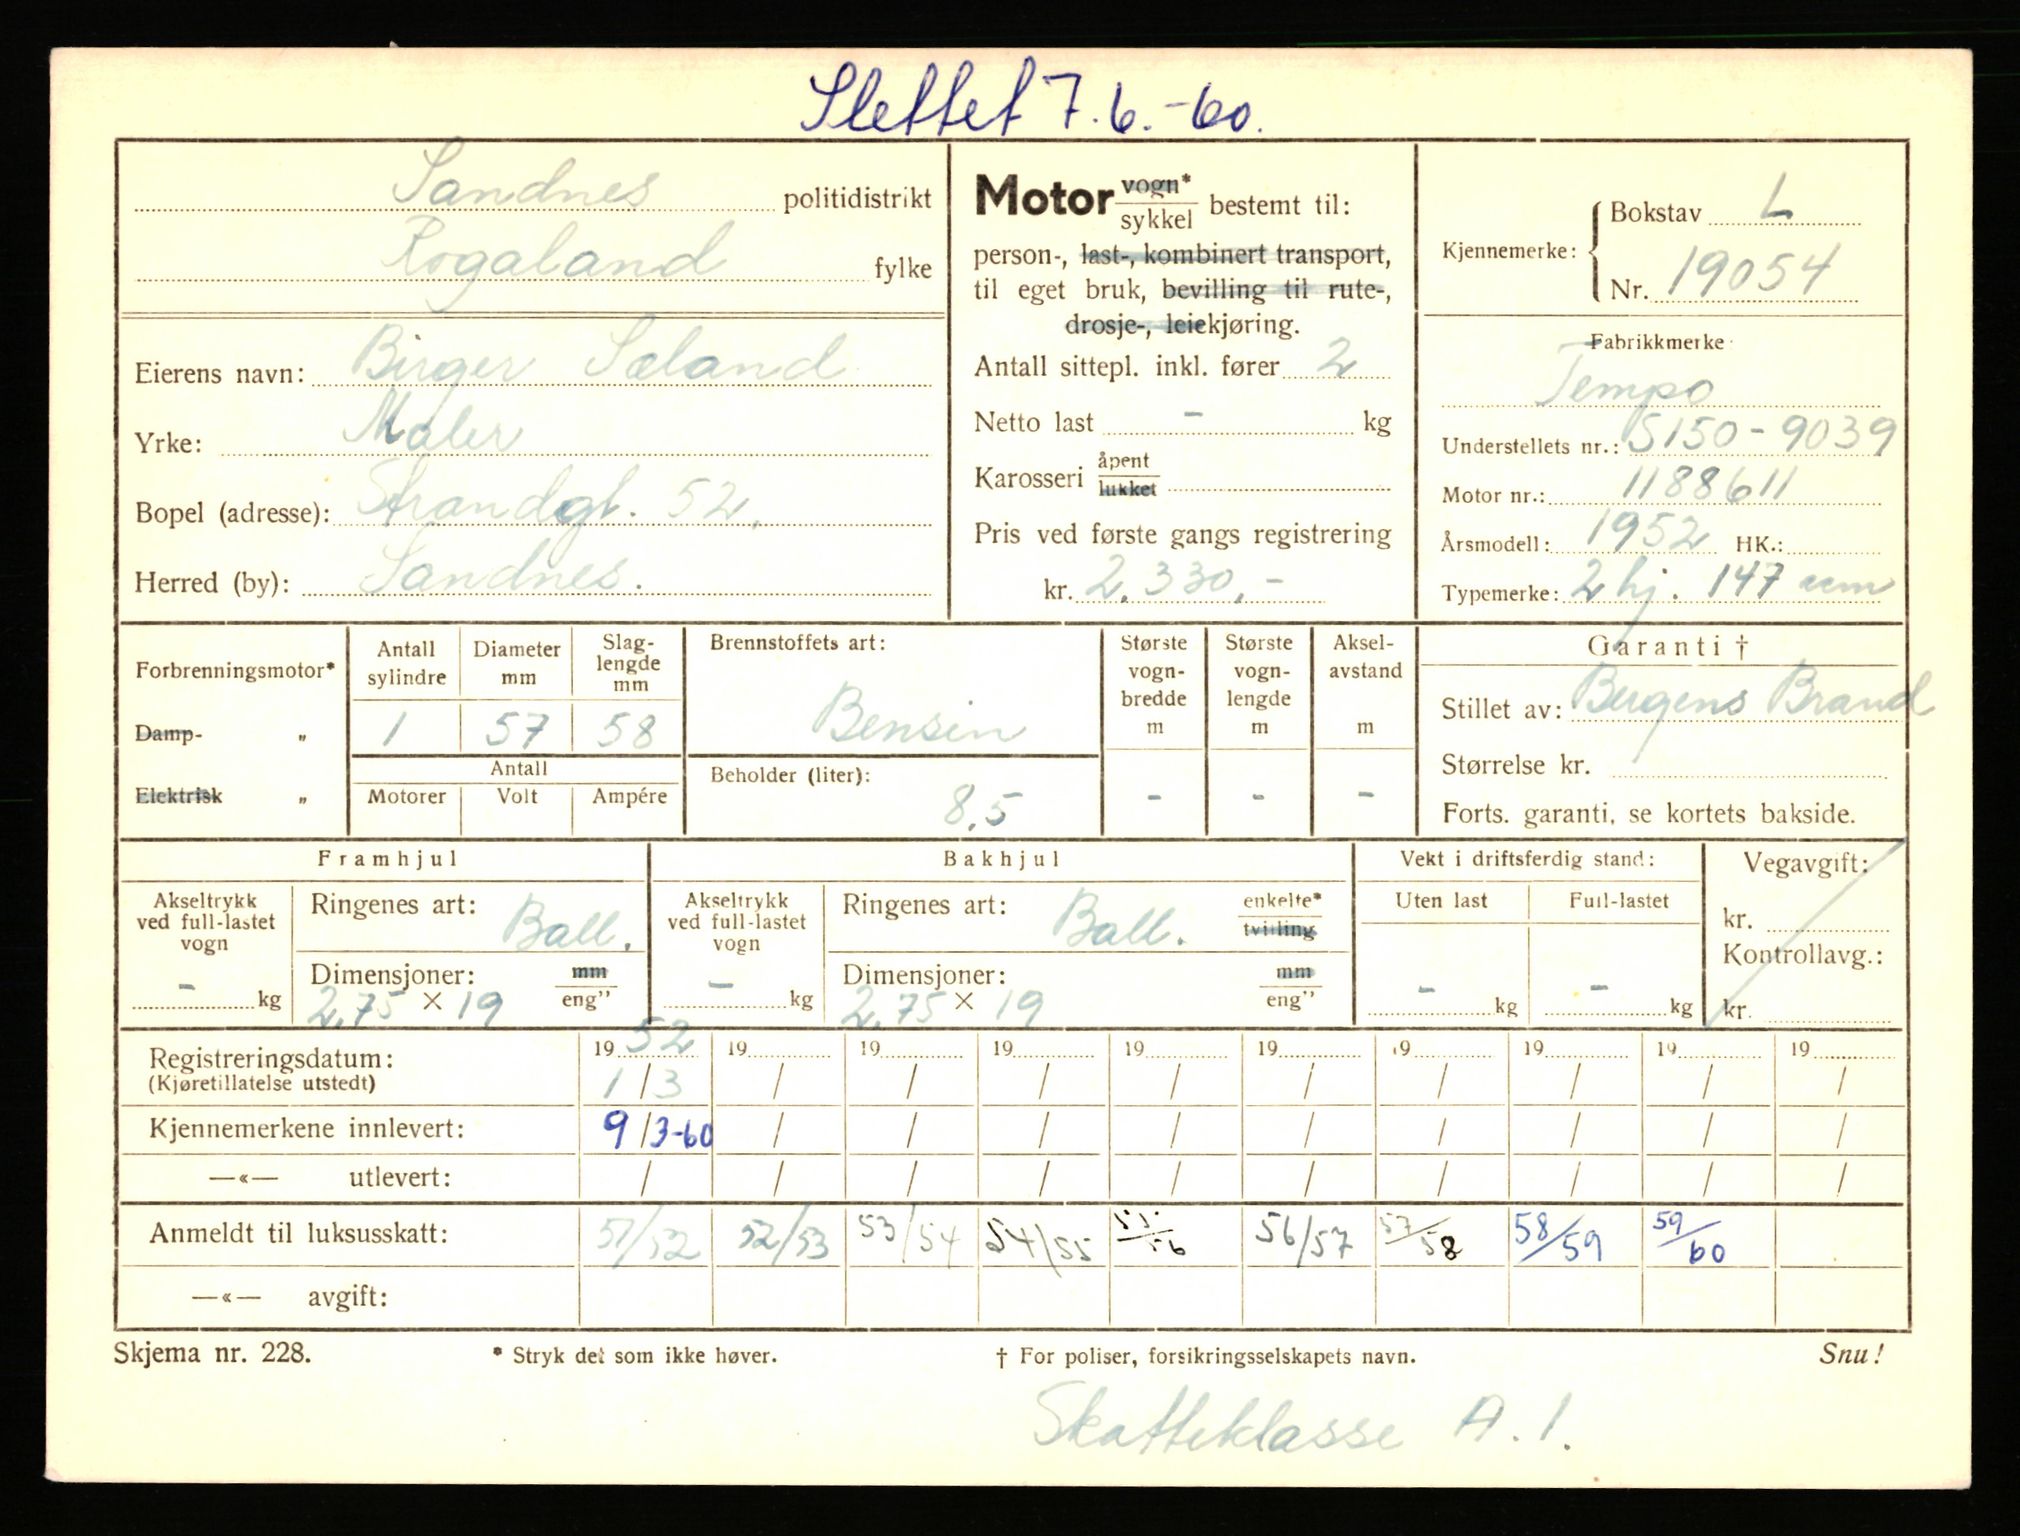 Slettet 7.6.-60.
Sandnes politidistrikt
Rogaland fylke
Eierens navn: Birger Sæland
Yrke: Maler
Bopel (adresse): Strandgt. 52.
Herred (by): Sandnes.
Motor vogn* / sykkel bestemt til:
person-, last-, kombinert transport,
til eget bruk, bevilling til rute-,
drosje-, leiekjøring.
Antall sittepl. inkl. fører 2
Netto last - kg
Karosseri åpent / lukket
Pris ved første gangs registrering
kr. 2.330,-
Kjennemerke: Bokstav L
Nr. 19054
Fabrikkmerke
Tempo
Understellets nr.: S150-9039
Motor nr.: 1188611
Årsmodell: 1952 HK.:
Typemerke: 2 hj. 147 ccm
Forbrenningsmotor*
Damp- „
Elektrisk „
Antall sylindre Diameter mm Slag-lengde mm
1 57 58
Antall
Motorer Volt Ampére
Brennstoffets art:
Bensin
Beholder (liter):
8,5
Største vogn-bredde m Største vogn-lengde m Aksel-avstand m
- - -
Garanti †
Stillet av: Bergens Brand
Størrelse kr.
Forts. garanti, se kortets bakside.
Framhjul
Akseltrykk ved full-lastet vogn
- kg
Ringenes art: Ball.
Dimensjoner: mm / eng”
2,75 × 19
Bakhjul
Akseltrykk ved full-lastet vogn
- kg
Ringenes art: Ball. enkelte* / tvilling
Dimensjoner: mm / eng”
2,75 × 19
Vekt i driftsferdig stand:
Uten last Full-lastet
- kg - kg
Vegavgift:
kr.
Kontrollavg.:
kr.
Registreringsdatum: 19 52 19 19 19 19 19 19 19 19 19
(Kjøretillatelse utstedt) 1/3 / / / / / / / / /
Kjennemerkene innlevert: 9/3-60 / / / / / / / / /
—«— utlevert: / / / / / / / / / /
Anmeldt til luksusskatt: 51/52 52/53 53/54 54/55 55/56 56/57 57/58 58/59 59/60
—«— avgift:
Skjema nr. 228. * Stryk det som ikke høver. † For poliser, forsikringsselskapets navn. Snu!
Skatteklasse A.1.